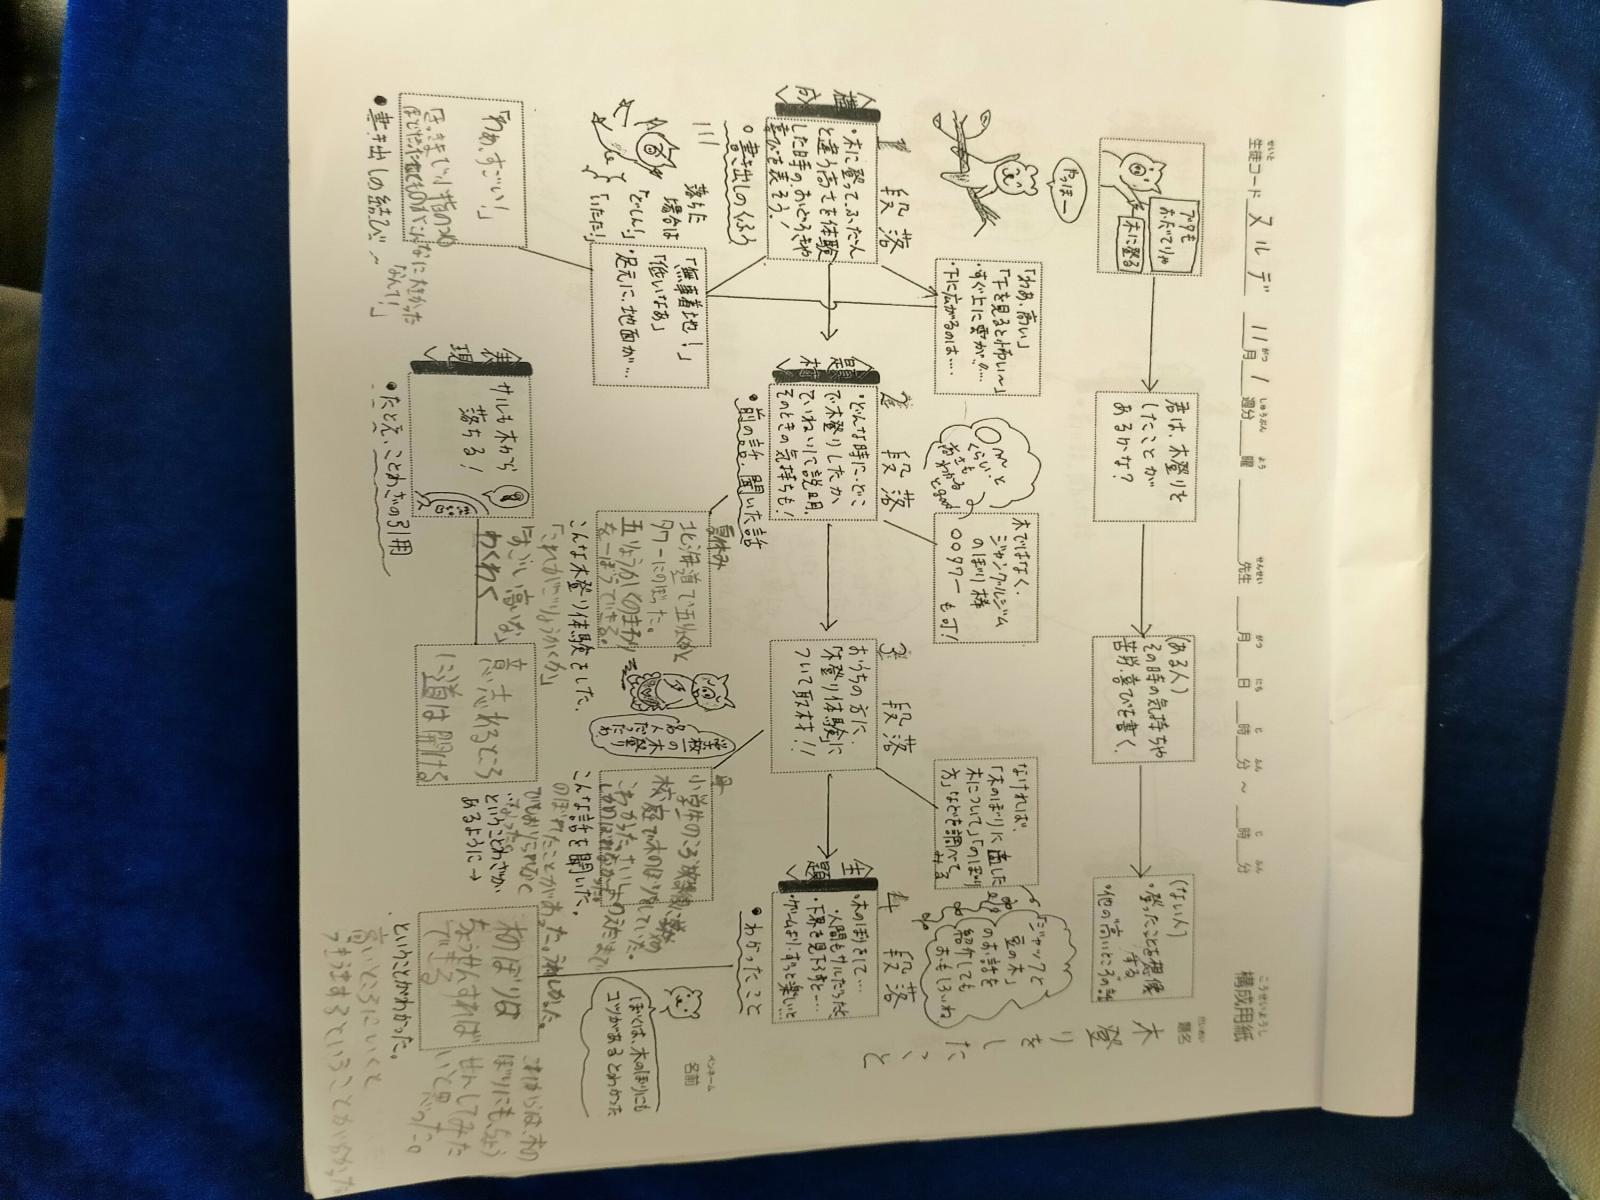 構成用紙
こうせいようし
生徒コード ヌルデ 11月1週分 曜 先生 月 日 時 分 ～ 時 分
せいと がつ しゅうぶん よう せんせい がつ にち じ ふん じ ふん
題名
だいめい
木登りをしたこと
ペンネーム
名前
ブタも
おだてりゃ
木に登る
君は、木登りを
したことが
あるかな？
(ある人)
その時の気持ちや
苦労・喜びを書く。
(ない人)
・登ったことを想像
する
・他の"高いところ"の話
やっほー
「わあ、高い」
「下を見ると怖い〜」
・すぐ上に雲が…
・下に広がるのは…
木ではなく、
ジャングルジム
のぼり棒
〇〇タワーも可！
なければ、
「木のぼりに適した
木について」「のぼり
方」などを調べて
みる
「ジャックと
豆の木」
のお話を
紹介しても
おもしろいね
1段落
2段落
3段落
4段落
〈構成〉
・木に登って、ふだん
と違う高さを体験
した時の、おどろきや
喜びを表そう！
◦書き出しのくふう
〈題材〉
・どんな時に・どこ
で木登りしたか
ていねいに説明。
そのときの気持ちも！
●前の話・聞いた話
おうちの方に、
「木登り体験」に
ついて取材！！
〈主題〉
・木のぼりをして…
・人間もサルだったよ
・下界を見下ろすと…
・ゲームより、ずっと楽しいよ
●わかったこと
落ちた
場合は
「どしん！」
「いたた！」
「無事着地！」
「低いなあ」
・足元に、地面が…
夏休み
北海道で五りょうかく
タワーにのぼった。
こんな木登り体験をした。
「これがごりょうかくか」
「すごい高いな」
わくわく
木登り
名人だね
母
小学生のころ
校庭で木のぼりをしていた。
こんな話を聞いた。
ぼくは、木のぼりにも
コツがあるとわかった
「わあ、すごい！」
●書き出しの結び〜
〈表現〉
サルも木から
落ちる！
●たとえ・ことわざの引用
意志あるところ
に道は開ける
ということわざが
あるように→
木のぼりは
ちょうせんすれば
できる
ということがわかった。
これからは、木の
ぼりにも、ちょう
せんしてみた
いと思った。
高いところにいくと